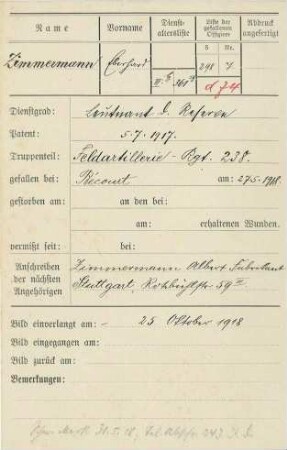 Name Vorname Dienstaltersliste Liste der gefallenen Offiziere Abdruck angefertigt
S Nr.
Zimmermann Eberhard 298 7
Dienstgrad: Leutnant d. Reserve
Patent: 5.7.1917.
Truppenteil: Feldartillerie-Rgt. 238.
gefallen bei: Bécourt am: 27.5.1918.
gestorben am: an den bei:
am: erhaltenen Wunden.
vermißt seit: bei:
Anschreiben der nächsten Angehörigen
Zimmermann Albert Fabrikant
Stuttgart,
Bild einverlangt am:- 25 Oktober 1918
Bild eingegangen am:
Bild zurück am:
Bemerkungen: